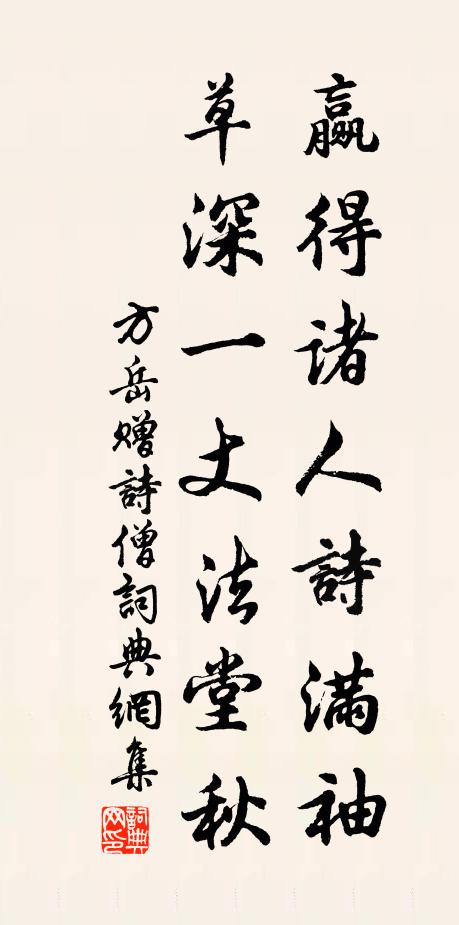 赢得诸人詩滿袖
草深一丈法堂秋
方岳赠詩僧詞典網集
詞典網印